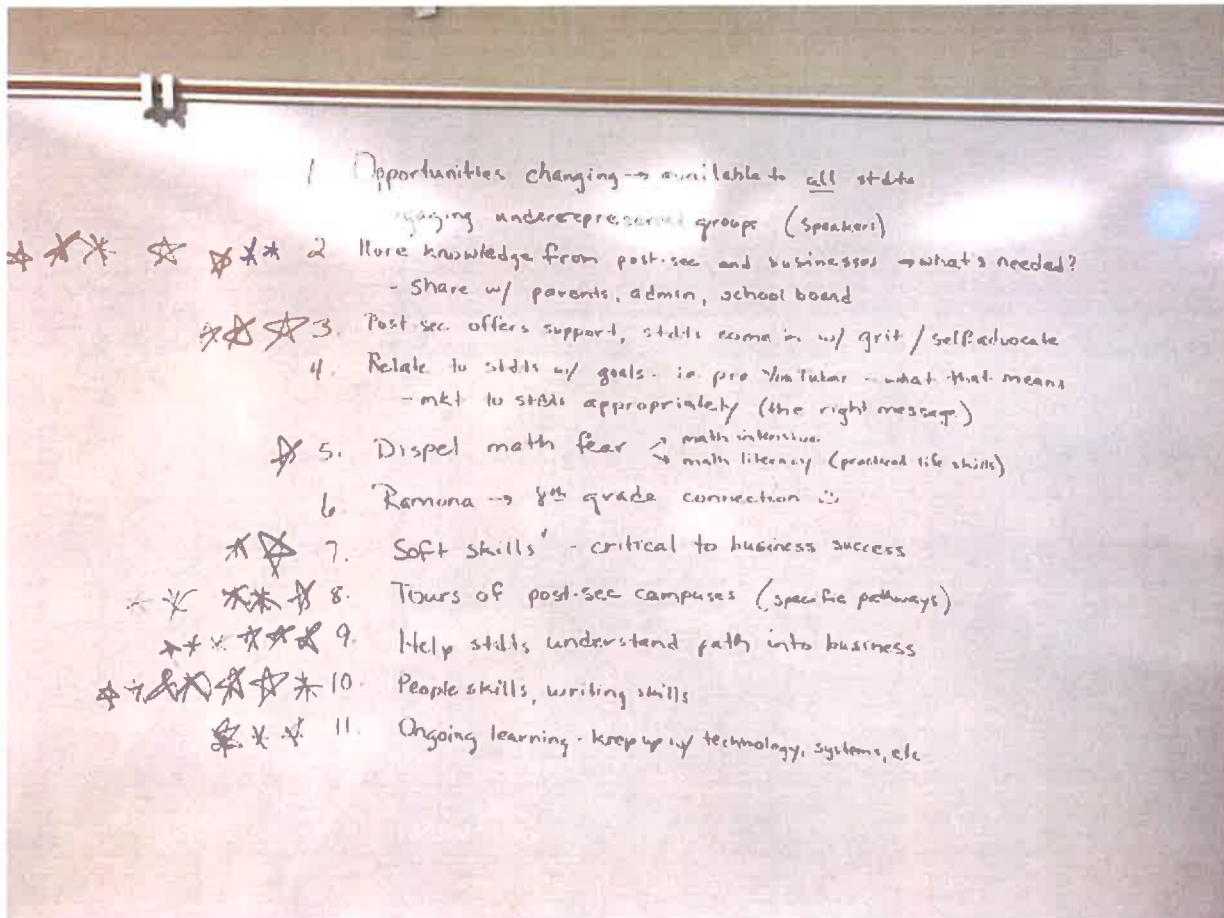 1 Opportunities changing → available to all stdts
engaging underrepresented groups (speakers)
2 More knowledge from post-sec and businesses → what's needed?
- Share w/ parents, admin, school board
3. Post-sec offers support, stdts come in w/ grit / self advocate
4. Relate to stdts w/ goals - ie pro YouTuber - what that means
- mkt to stdts appropriately (the right message)
5. Dispel math fear → math intensive
→ math literacy (practical life skills)
6 Ramona → 8th grade connection
7. Soft skills - critical to business success
8. Tours of post-sec campuses (specific pathways)
9. Help stdts understand path into business
10. People skills, writing skills
11. Ongoing learning - keep up w/ technology, systems, etc